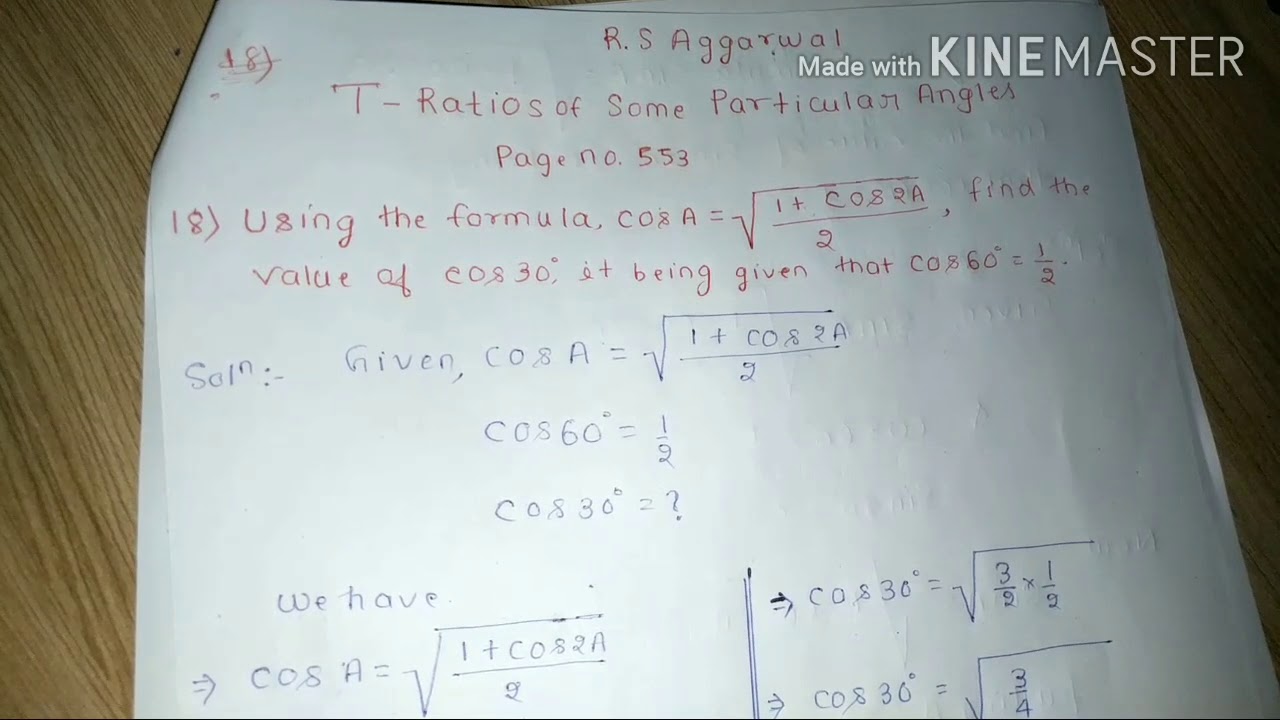 18)
R.S Aggarwal
Made with KINEMASTER
T-Ratios of Some Particular Angles
Page no. 553
18) Using the formula, cos A = √(1 + cos 2A / 2), find the
value of cos 30°, it being given that cos 60° = 1/2.
Solⁿ:- Given, cos A = √(1 + cos 2A / 2)
cos 60° = 1/2
cos 30° = ?
We have
⇒ cos A = √(1 + cos 2A / 2)
⇒ cos 30° = √(3/2 × 1/2)
⇒ cos 30° = √(3/4)